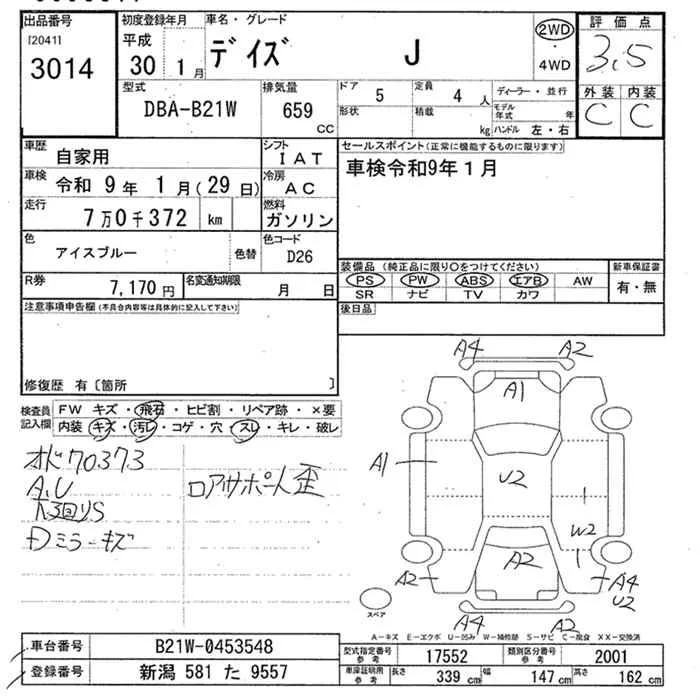 出品番号
120411
3014
初度登録年月
平成
30 1月
車名・グレード
デイズ J
2WD
・
4WD
評価点
3.5
外装 内装
C C
型式
DBA-B21W
排気量
659
cc
ドア
5
定員
4 人
形状
積載
kg
ディーラー・並行
モデル
年式 年
ハンドル 左・右
車歴
自家用
シフト
IAT
車検
令和 9年 1月(29日)
冷房
AC
走行
7万0千372 km
燃料
ガソリン
色
アイスブルー
色替
色コード
D26
R券
7,170円
名変通知期限
月 日
セールスポイント(正常に機能するものに限ります)
車検令和9年1月
装備品 (純正品に限り〇をつけてください)
PS PW ABS エアB AW
SR ナビ TV カワ
新車保証書
有・無
後日品
注意事項申告欄(不具合内容等は具体的に記入して下さい)
修復歴 有〔箇所 〕
検査員
記入欄
FW キズ・飛石・ヒビ割・リペア跡・×要
内装 キズ・汚レ・コゲ・穴・スレ・キレ・破レ
オド70373
A.U
Dミラーキズ
ロアサポート歪
A4 A2
A1
A1
U2
W2
A2
A2
A4
U2
A4 A2
スペア
A-キズ E-エクボ U-凹み W-補修跡 S-サビ C-腐食 XX-交換済
車台番号
B21W-0453548
登録番号
新潟 581 た 9557
型式指定番号
参考
17552
類別区分番号
参考
2001
車庫証明用
参考
長さ
339 cm
幅
147 cm
高さ
162 cm